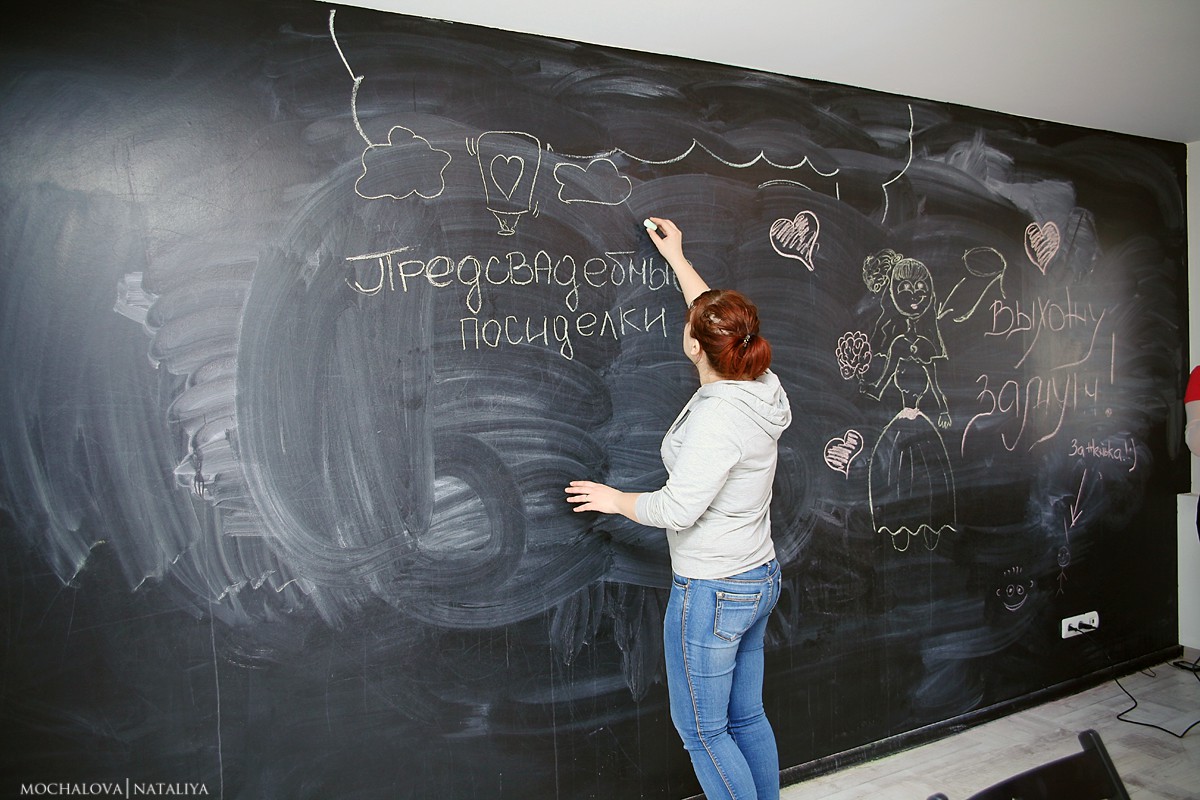 Предсвадебные
посиделки
Выхожу
замуж!
Заженька! :)
MOCHALOVA|NATALIYA